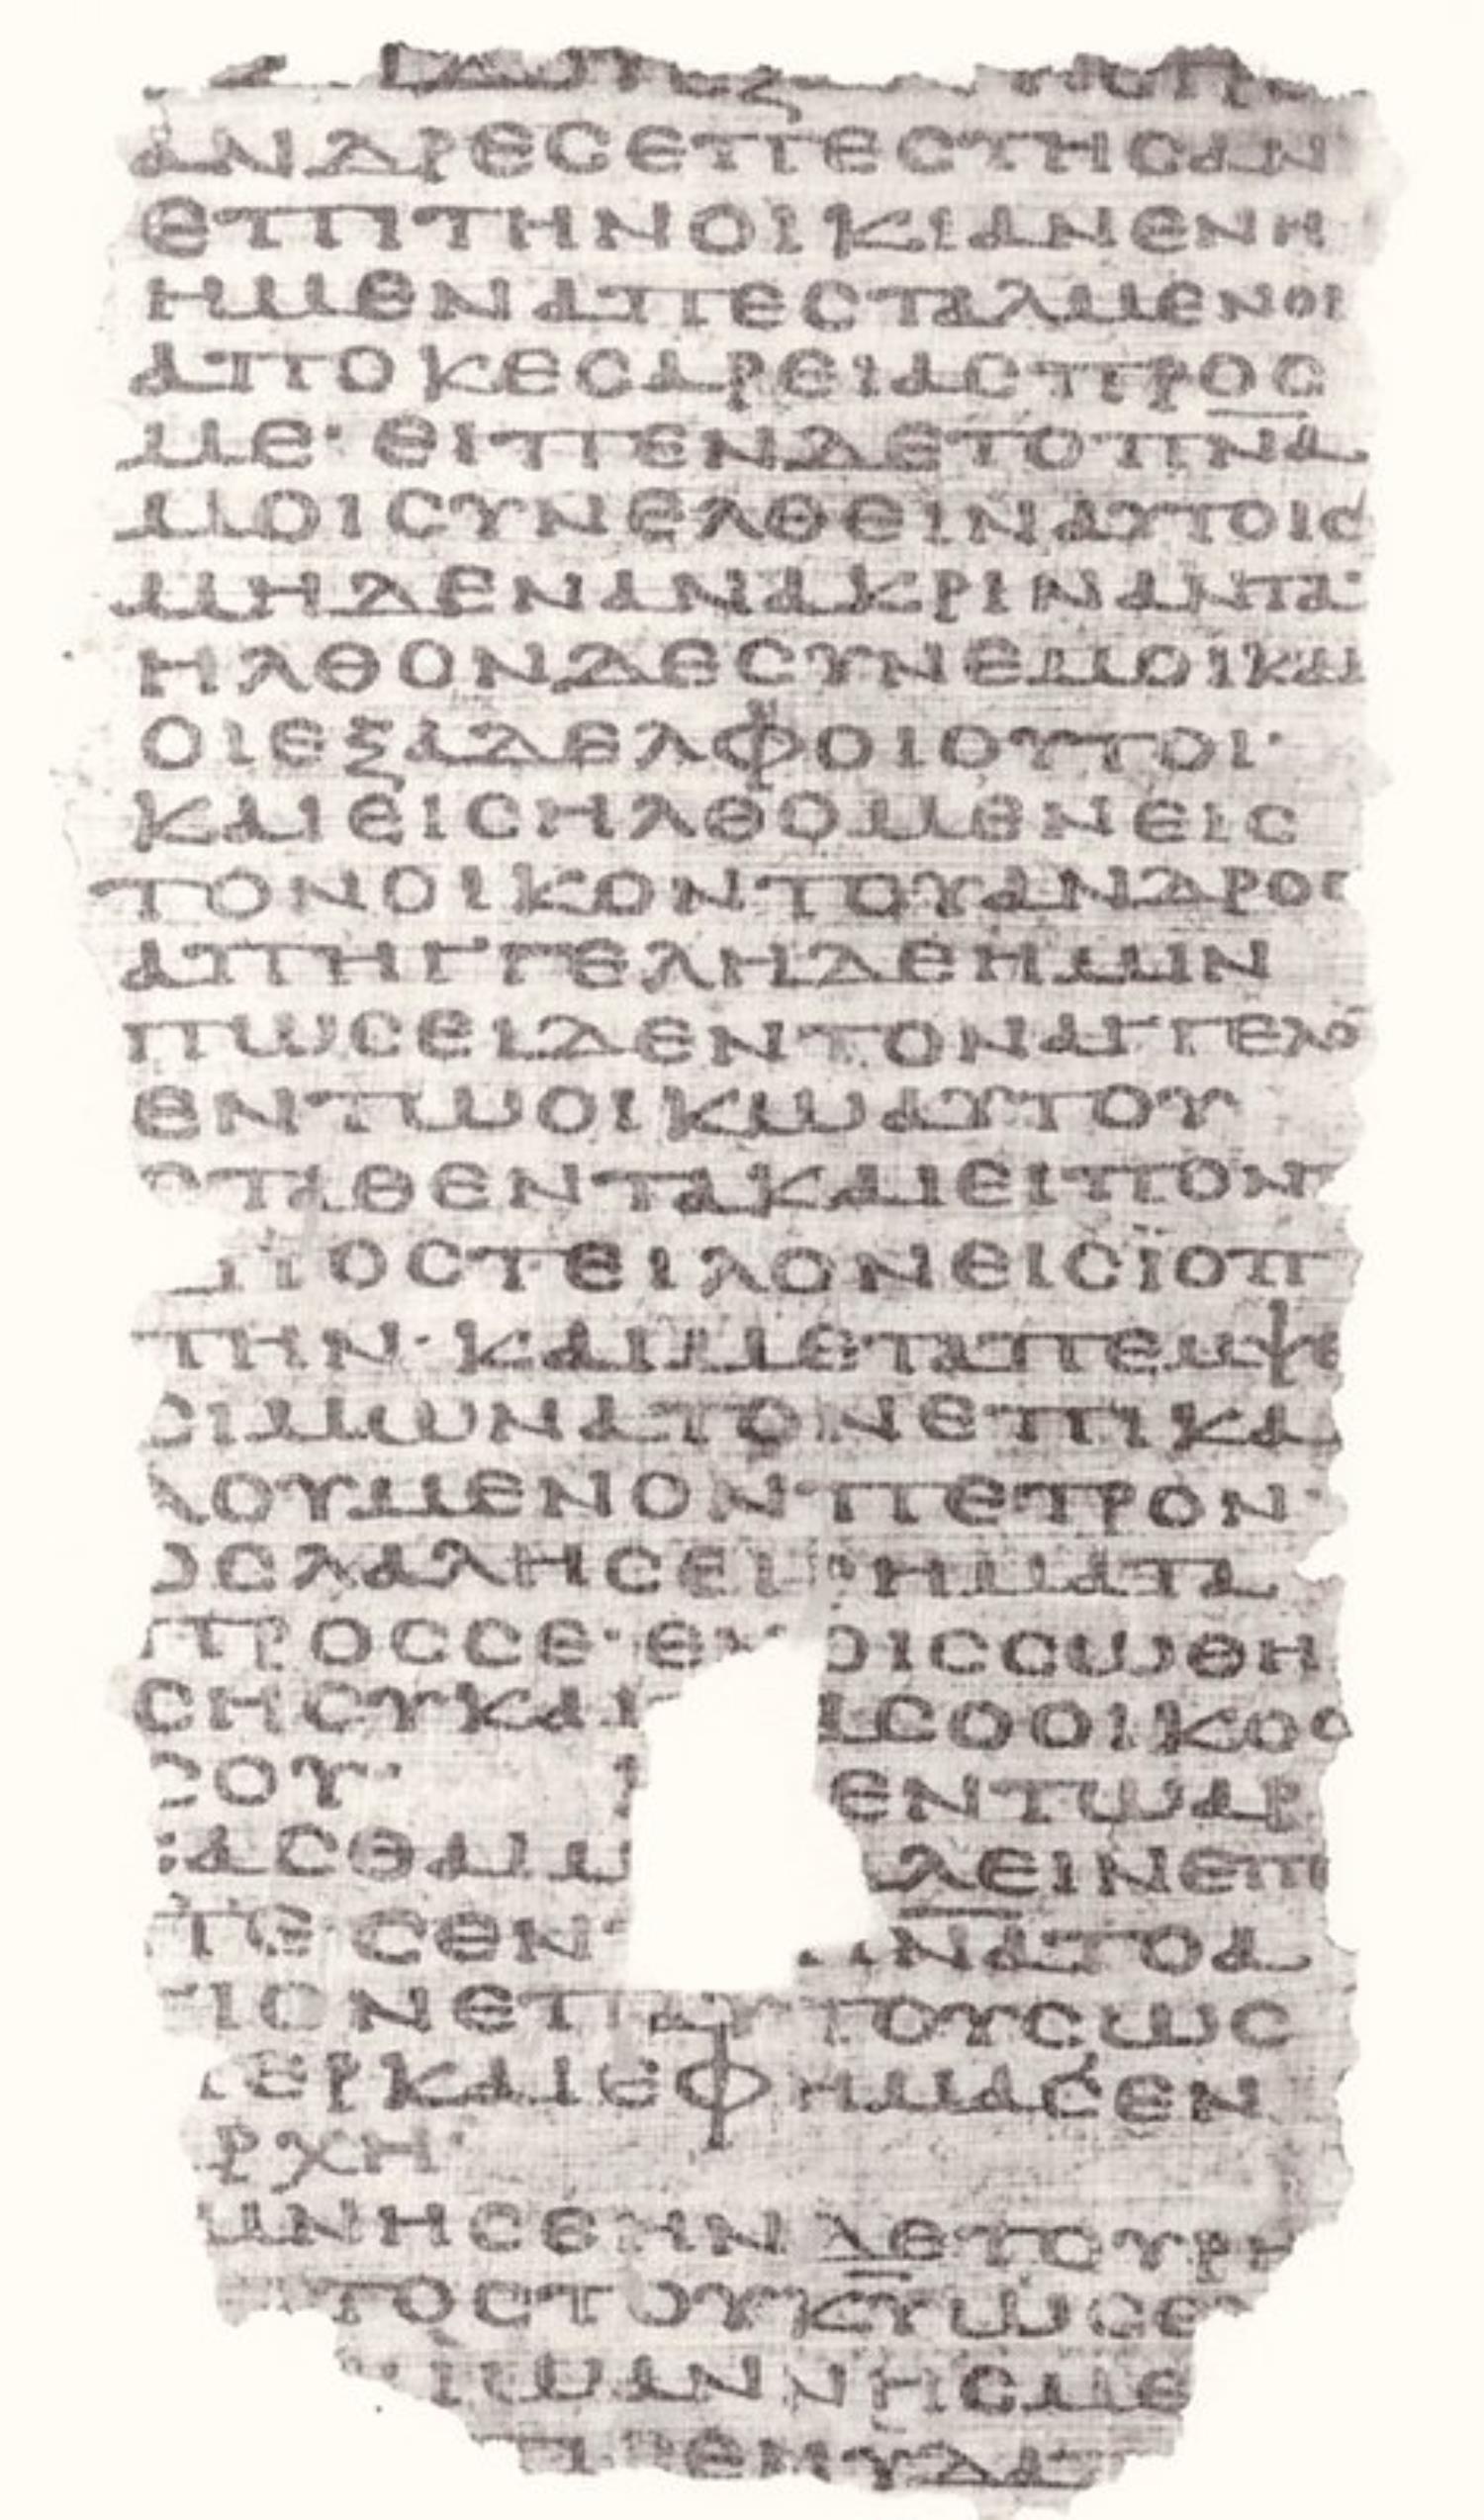 ΑΝΔΡΕCΕΠΕCΤΗCΑΝ
ΕΠΙΤΗΝΟΙΚΙΑΝΕΝΗ
ΗΜΕΝΑΠΕCΤΑΛΜΕΝΟΙ
ΑΠΟΚΕCΑΡΕΙΑCΠΡΟC
ΜΕ· ΕΙΠΕΝΔΕΤΟΠ̅Ν̅Α̅
ΜΟΙCΥΝΕΛΘΕΙΝΑΥΤΟΙC
ΜΗΔΕΝΑΝΑΚΡΙΝΑΝΤΑ·
ΗΛΘΟΝΔΕCΥΝΕΜΟΙΚΑΙ
ΟΙΕΞΑΔΕΛΦΟΙΟΥΤΟΙ·
ΚΑΙΕΙCΗΛΘΟΜΕΝΕΙC
ΤΟΝΟΙΚΟΝΤΟΥΑΝΔΡΟC
ΑΠΗΓΓΕΛΗΔΕΗΜΙΝ
ΠΩCΕΙΔΕΝΤΟΝΑΓΓΕΛΟ
ΕΝΤΩΟΙΚΩΑΥΤΟΥ
CΤΑΘΕΝΤΑΚΑΙΕΙΠΟΝ
ΠΟCΤΕΙΛΟΝΕΙCΪΟΠ
ΤΗΝ· ΚΑΙΜΕΤΑΠΕΜΨΕ
CΙΜΩΝΑΤΟΝΕΠΙΚΑ
ΛΟΥΜΕΝΟΝΠΕΤΡΟΝ·
ΟCΛΑΛΗCΕΙΡΗΜΑΤΑ
ΠΡΟCCΕ· ΕΝΟΙCCΩΘΗ
CΗCΥΚΑΙ ΑCΟΟΙΚΟC
CΟΥ· ΕΝΤΩΑΡ
ΞΑCΘΑΙΜ ΛΕΙΝΕΠΙ
ΠΕCΕΝ Π̅Ν̅Α̅ΤΟΑ
ΓΙΟΝΕΠΑΥΤΟΥCΩC
ΠΕΡΚΑΙΕΦΗΜΑCΕΝ
ΡΧΗ·
ΜΝΗCΘΗΝΔΕΤΟΥΡΗ
ΤΟCΤΟΥΚ̅Υ̅ΩCΕ
ΙΩΑΝΝΗCΜΕ
ΕΝΥΔΑ